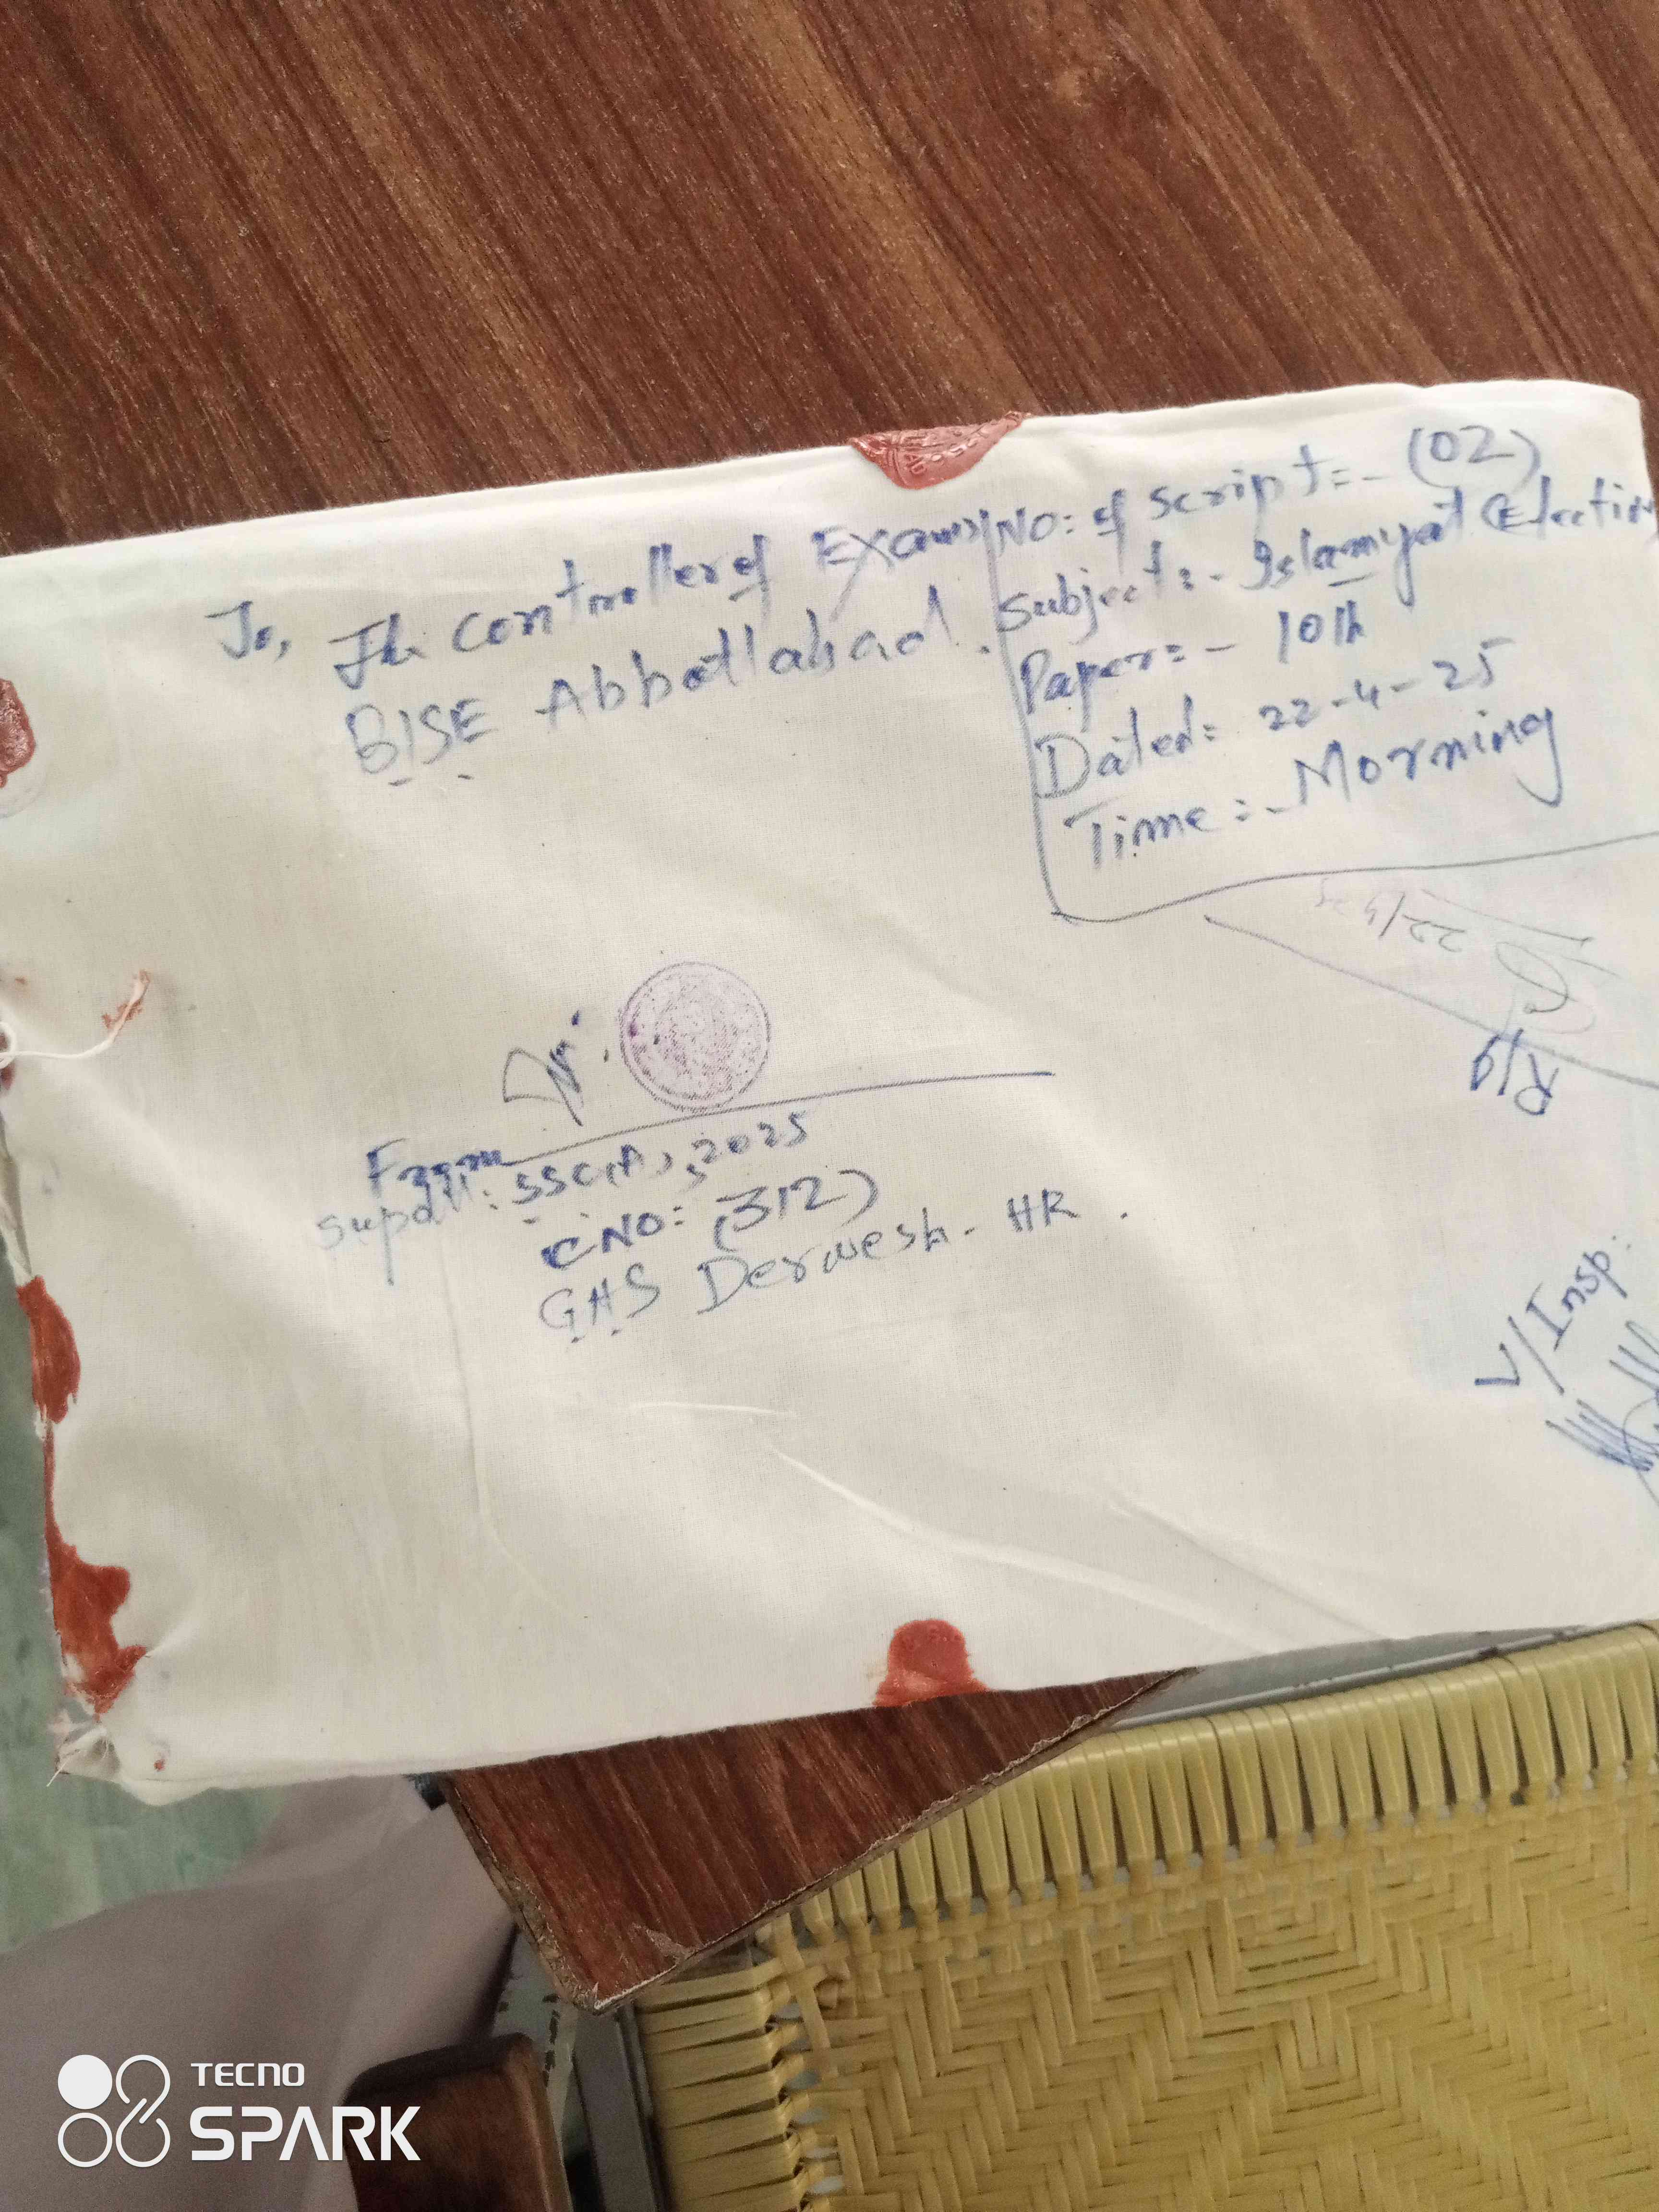 To, The Controller of Exams
BISE Abbottabad.
No: of script:- (02)
Subject:- Islamyat Elective
Paper:- 10th
Dated: 22-4-25
Time:- Morning
From
Supdtt: SSC(A), 2025
C NO: (312)
GHS Derwesh. HR.
22/4/25
R/I
V/Insp:
TECNO
SPARK